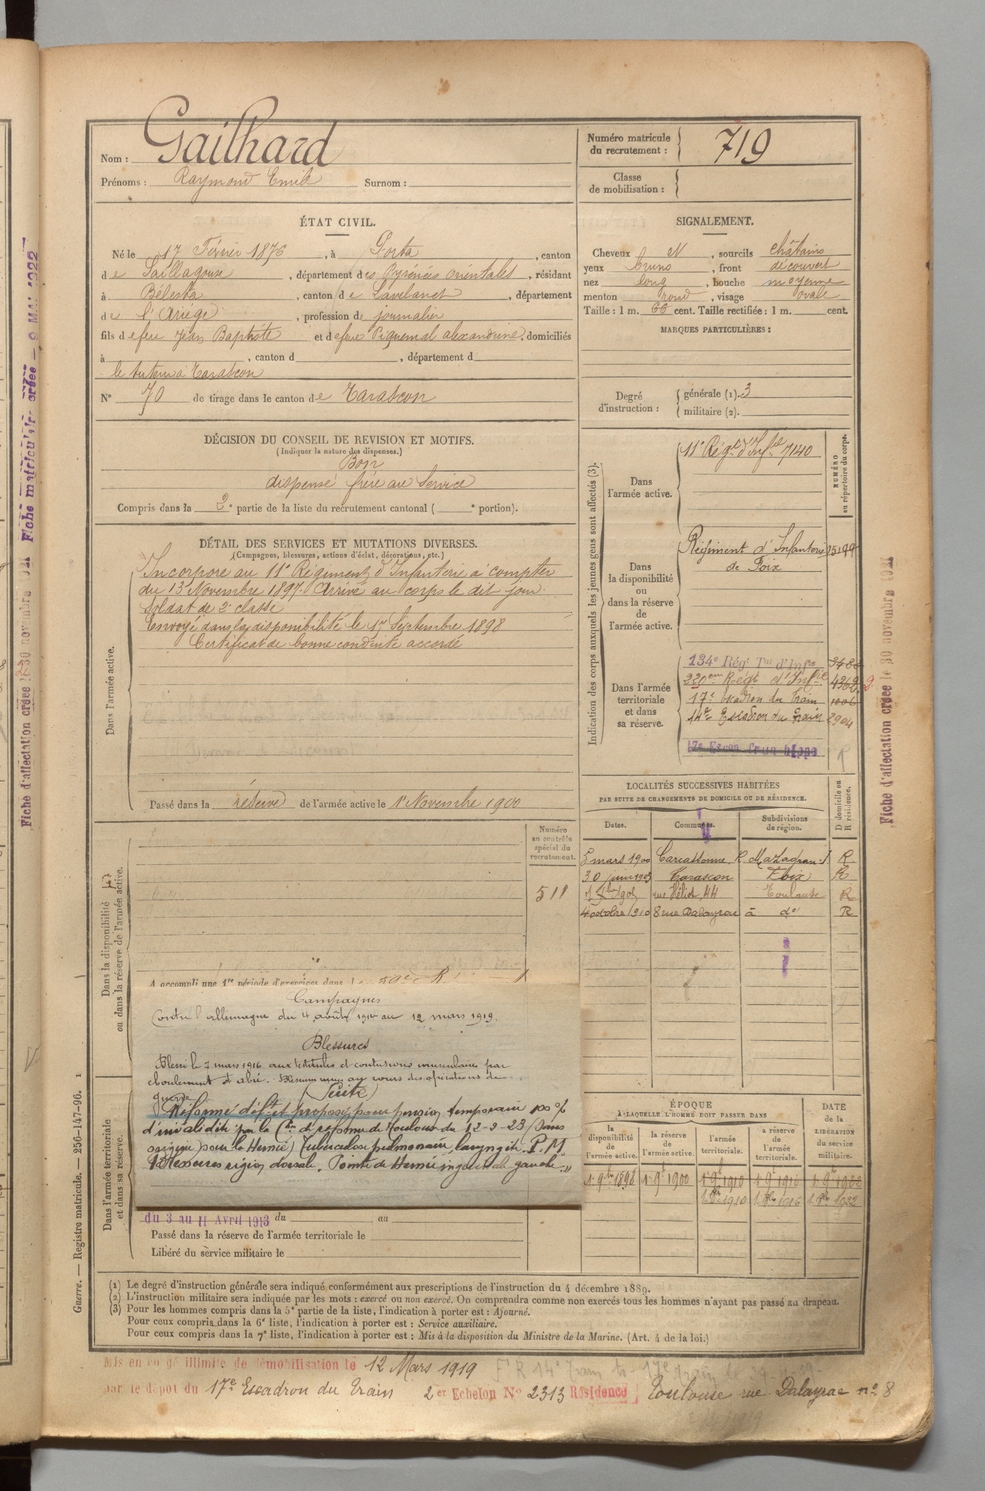 Nom : Gailhard
Prénoms : Raymond Emile Surnom :
Numéro matricule du recrutement : 719
Classe de mobilisation :
ÉTAT CIVIL.
Né le 17 Février 1876, à Porta, canton
de Saillagouse, département des Pyrénées orientales, résidant
à Bélesta, canton de Lavelanet, département
de l'Ariège, profession de journalier
fils de feu Jean Baptiste et de feue Piquemal alexandrine, domiciliés
à , canton d , département d
le tuteur à Tarascon
N° 70 de tirage dans le canton de Tarascon
SIGNALEMENT.
Cheveux N, sourcils châtains
yeux bruns, front découvert
nez long, bouche moyenne
menton rond, visage ovale
Taille : 1 m. 66 cent. Taille rectifiée : 1 m. cent.
MARQUES PARTICULIÈRES :
Degré d'instruction : générale (1). 3
militaire (2).
DÉCISION DU CONSEIL DE REVISION ET MOTIFS.
(Indiquer la nature des dispenses.)
Bon
dispensé frère au Service
Compris dans la 2e partie de la liste du recrutement cantonal ( e portion).
DÉTAIL DES SERVICES ET MUTATIONS DIVERSES.
(Campagnes, blessures, actions d'éclat, décorations, etc.)
Dans l'armée active.
Incorporé au 11e Régiment d'Infanterie à compter
du 13 Novembre 1897. Arrivé au corps le dit jour
Soldat de 2e classe
Envoyé dans la disponibilité le 17 Septembre 1898
Certificat de bonne conduite accordé
Passé dans la réserve de l'armée active le 1er Novembre 1900
Indication des corps auxquels les jeunes gens sont affectés (3).
NUMÉRO au répertoire du corps.
Dans l'armée active.
11e Régt d'Infie 7140
Dans la disponibilité ou dans la réserve de l'armée active.
Régiment d'Infanterie 15199
de Foix
Dans l'armée territoriale et dans sa réserve.
134e Régt Tal d'Infie
330eme Régt d'Infie
17e escadron du train
14e Escadron du train 2904
LOCALITÉS SUCCESSIVES HABITÉES
PAR SUITE DE CHANGEMENTS DE DOMICILE OU DE RÉSIDENCE.
Dates. Communes. Subdivisions de région. D domicile ou R résidence.
5 mars 1900 Carcassonne R. Mazagran R
30 juin 1903 Tarascon Foix R
Toulouse R
4 octobre 1910 8 rue Dalayrac à do R
Numéro au contrôle spécial du recrutement.
511
Dans la disponibilité ou dans la réserve de l'armée active.
A accompli une 1re période d'exercices dans l
Campagnes
Contre l'allemagne du 4 août 1914 au 12 mars 1919.
Blessures
Blessé le 7 mars 1916 contusions musculaires par
éboulement d'abri. au cours des opérations de
guerre (Suite)
Réformé déft et proposé pour pension temporaire 100 %
d'invalidité par la Con de réforme de Toulouse du 12-3-23 (Sans
origine) pour la Hernie) Tuberculose pulmonaire, laryngite. P.M.
Blessures région dorsale. Pointe de Hernie inguinale gauche."
Dans l'armée territoriale et dans sa réserve.
du 3 au 11 Avril 1913 du au
Passé dans la réserve de l'armée territoriale le
Libéré du service militaire le
ÉPOQUE
À LAQUELLE L'HOMME DOIT PASSER DANS
la disponibilité de l'armée active. la réserve de l'armée active. l'armée territoriale. la réserve de l'armée territoriale. DATE de la LIBÉRATION du service militaire.
1er 9bre 1898 1er 9bre 1900 1er 9bre 1910 1er 9bre 1916
(1) Le degré d'instruction générale sera indiqué conformément aux prescriptions de l'instruction du 4 décembre 1889.
(2) L'instruction militaire sera indiquée par les mots : exercé ou non exercé. On comprendra comme non exercés tous les hommes n'ayant pas passé au drapeau.
(3) Pour les hommes compris dans la 5e partie de la liste, l'indication à porter est : Ajourné.
Pour ceux compris dans la 6e liste, l'indication à porter est : Service auxiliaire.
Pour ceux compris dans la 7e liste, l'indication à porter est : Mis à la disposition du Ministre de la Marine. (Art. 4 de la loi.)
Mis en congé illimité de démobilisation le 12 Mars 1919
par le dépôt du 17e Escadron du Train 2er Echelon N° 2313 Résidence Toulouse rue Dalayrac n° 8
Guerre. — Registre matricule. — 256-147-96.
Fiche d'affectation créée le 30 novembre
Fiche matricule créée
Fiche d'affectation créée le 30 novembre